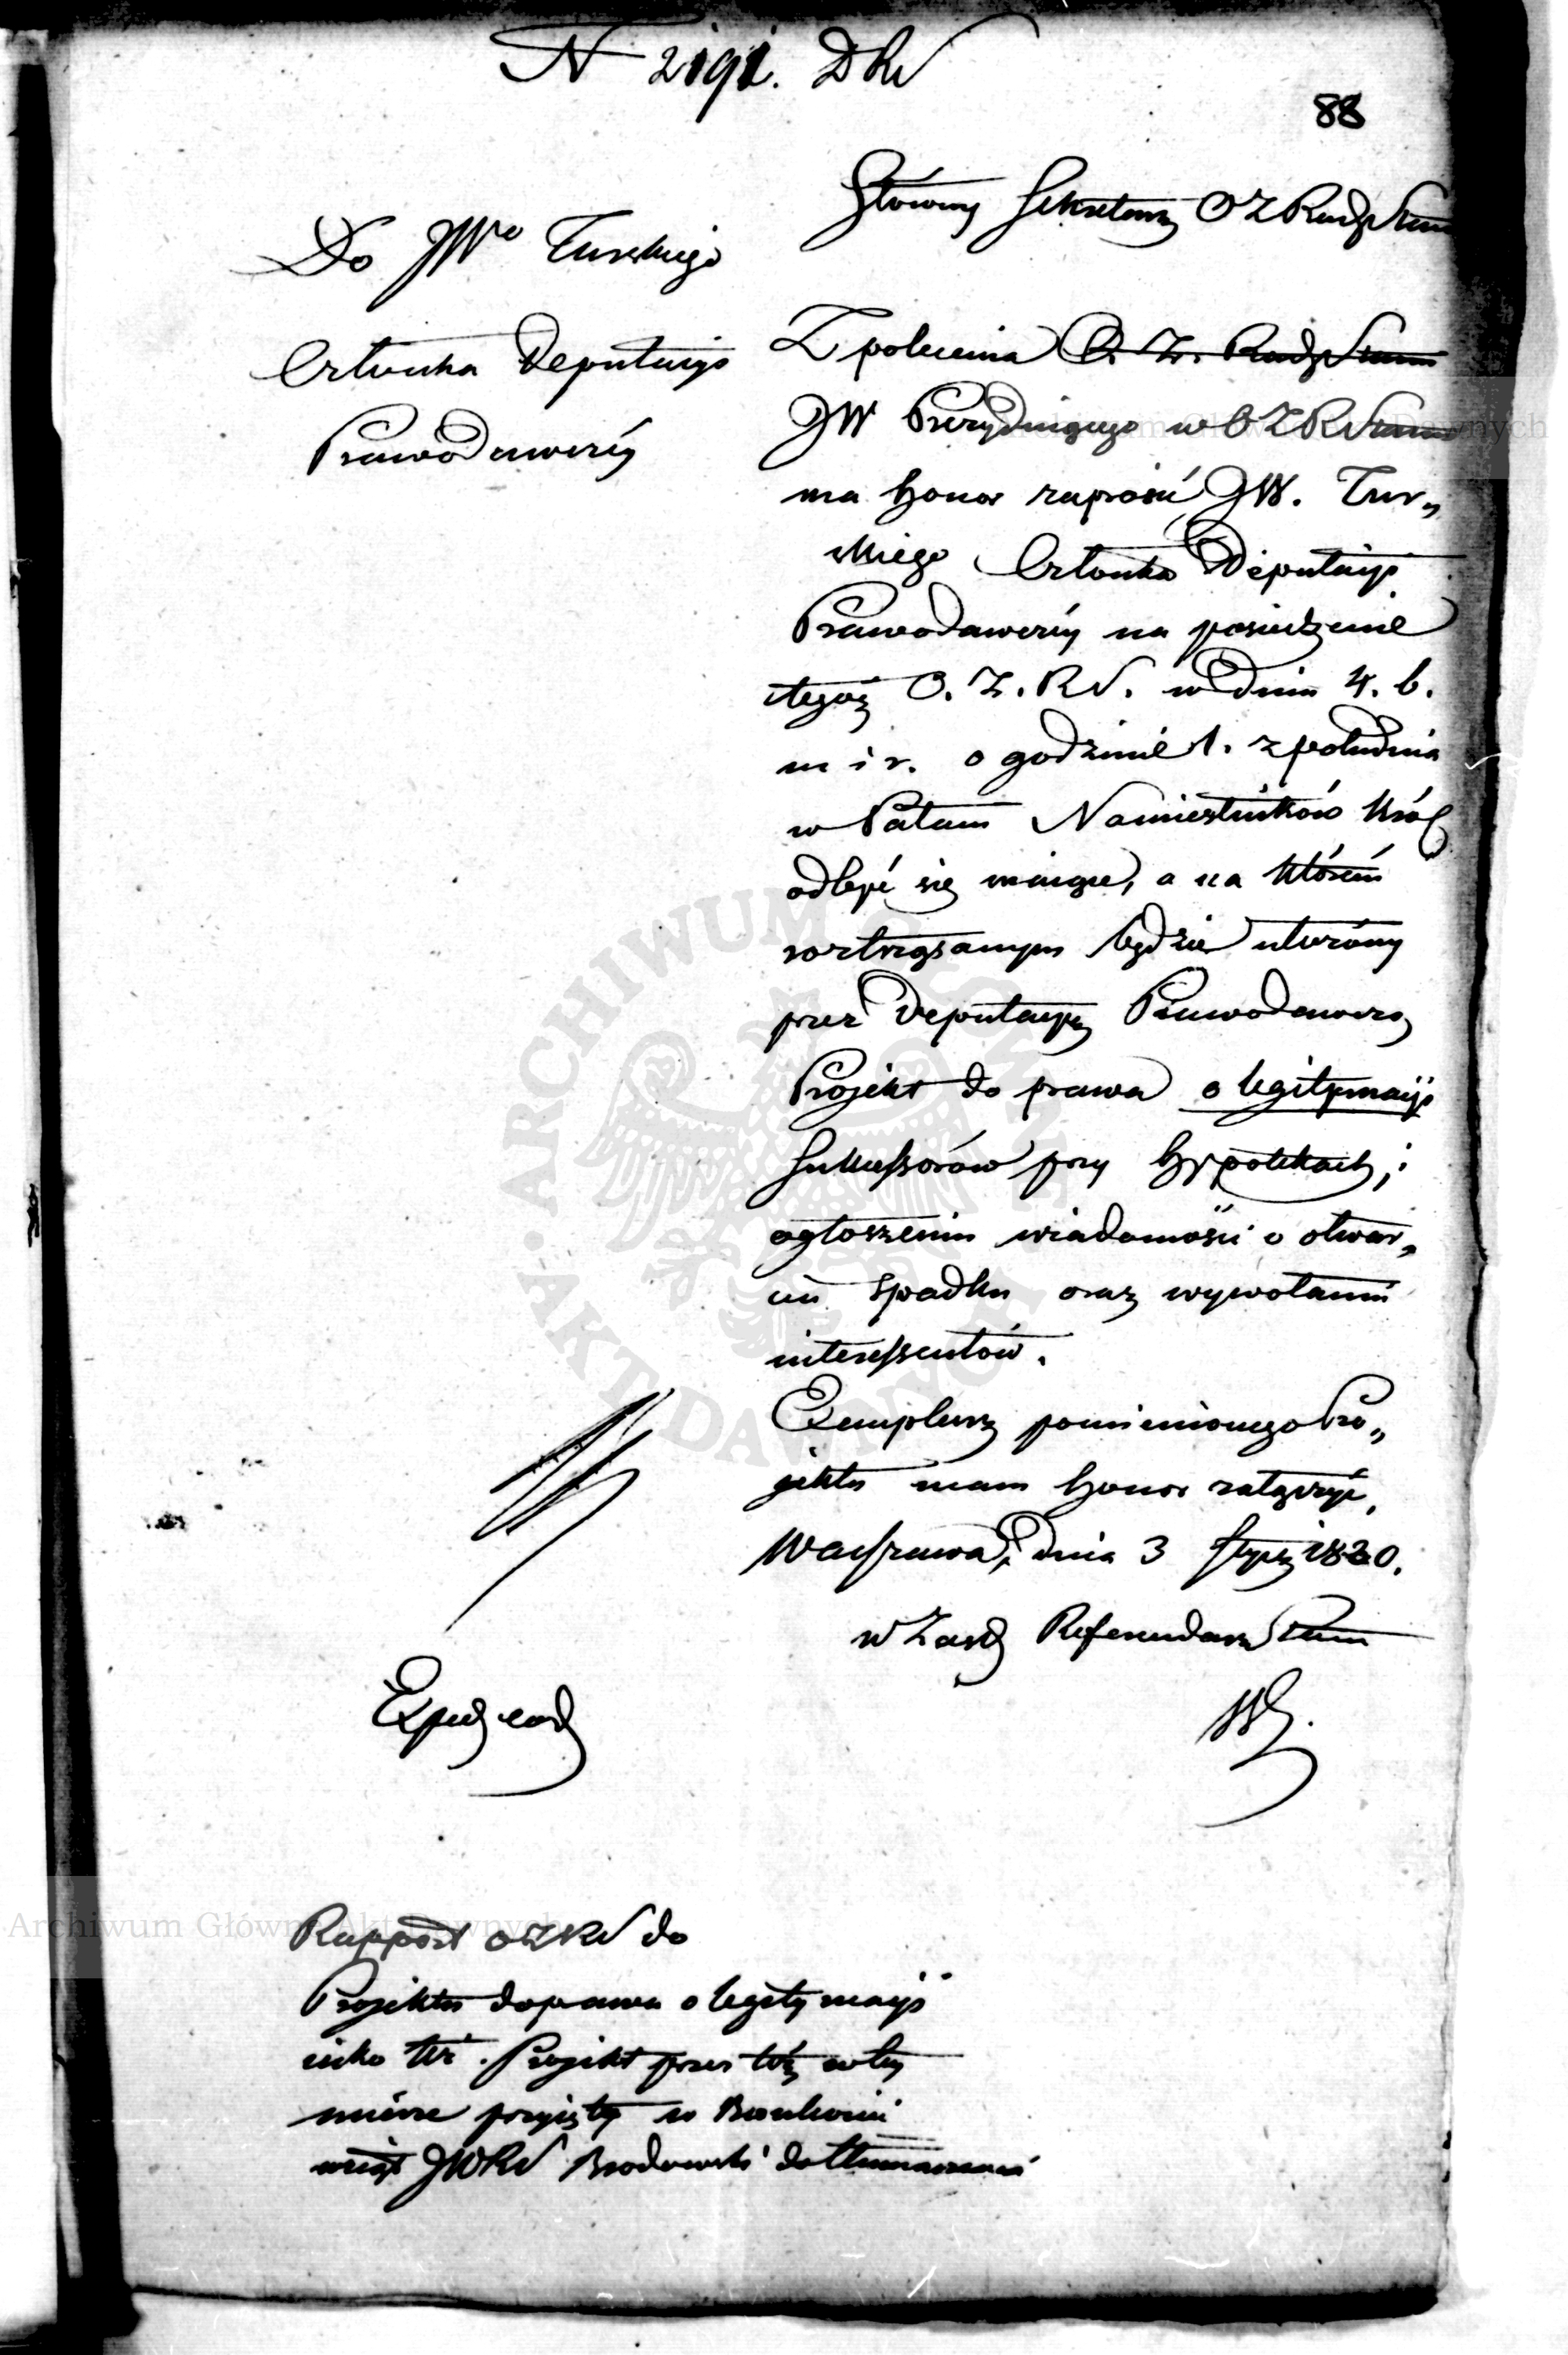 N 2191. DRS
88
Główny Sekretarz O Z Rady Stanu
Do JWo Turskiego
Członka Deputacyi
Prawodawczéy
Z polecenia O. Z. Rady Stanu
JW Prezyduiącego w O Z R Stanu
ma honor zaprosić JW. Tur„
skiego Członka Deputacyi
Prawodawczéy na posiedzenie
tegoż O. Z. R S. w dniu 4. b.
m i r. o godzinie 1. z południa
w Pałacu Namiestników Król
odbyć się maiące, a na którém
roztrząsanym będzie utworzony
przez Deputacyą Prawodawczą
Projekt do prawa o legitymacyi
Sukcessorów przy hypotekach, i
ogłoszeniu wiadomości o otwar„
ciu Spadku oraz wywołaniu
interessentów.
Exemplarz pomienionego Pro„
jektu mam honor załączyć,
Warszawa, dnia 3 Stycz 1820.
w Zast Referendarz Stanu
Exped eod
Rapport O Z R S do
Projektu do prawa o legitymacyi
Projekt przez
mierze przyięty w
wziął JW R S Brodowski do tłumaczenia